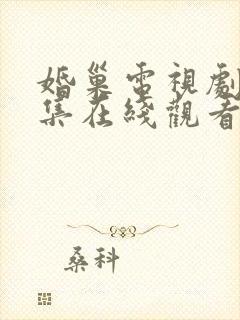 婚巢電視劇
集在綫觀看
桑科